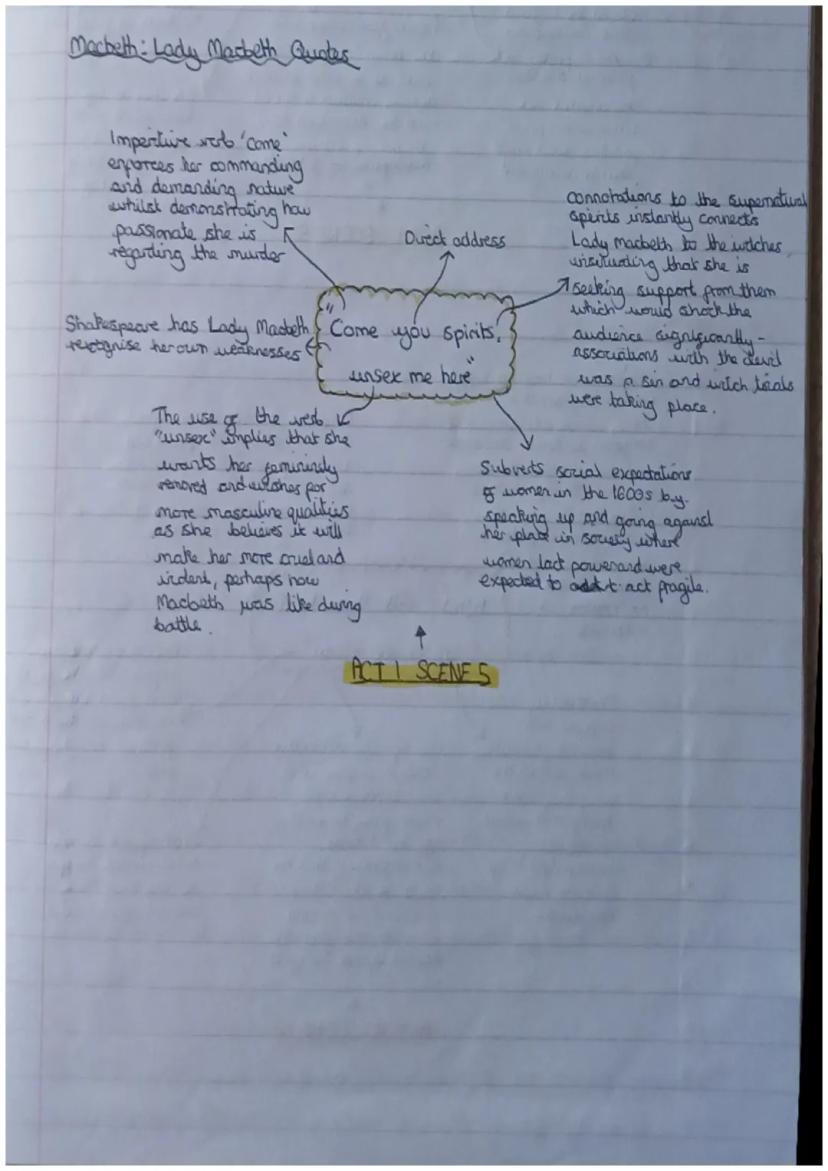 Macbeth: Lady Macbeth Quotes
Imperitive verb 'come'
enforces her commanding
and demanding nature
whilst demonstrating how
passionate she is
regarding the murder
Direct address
connotations to the supernatural
spirits instantly connects
Lady macbeth to the witches,
insinuating that she is
seeking support from them
which would shock the
audience significantly -
associations with the devil
was a sin and witch trials
were taking place.
Shakespeare has Lady Macbeth
recognise her own weaknesses
"Come you spirits,
unsex me here"
The use of the verb
"unsex" implies that she
wants her femininity
removed and wishes for
more masculine qualities
as she believes it will
make her more cruel and
violent, perhaps how
Macbeth was like during
battle.
Subverts social expectations
of women in the 1600s by
speaking up and going against
her place in society where
women lact power and were
expected to act fragile.
ACT 1 SCENE 5